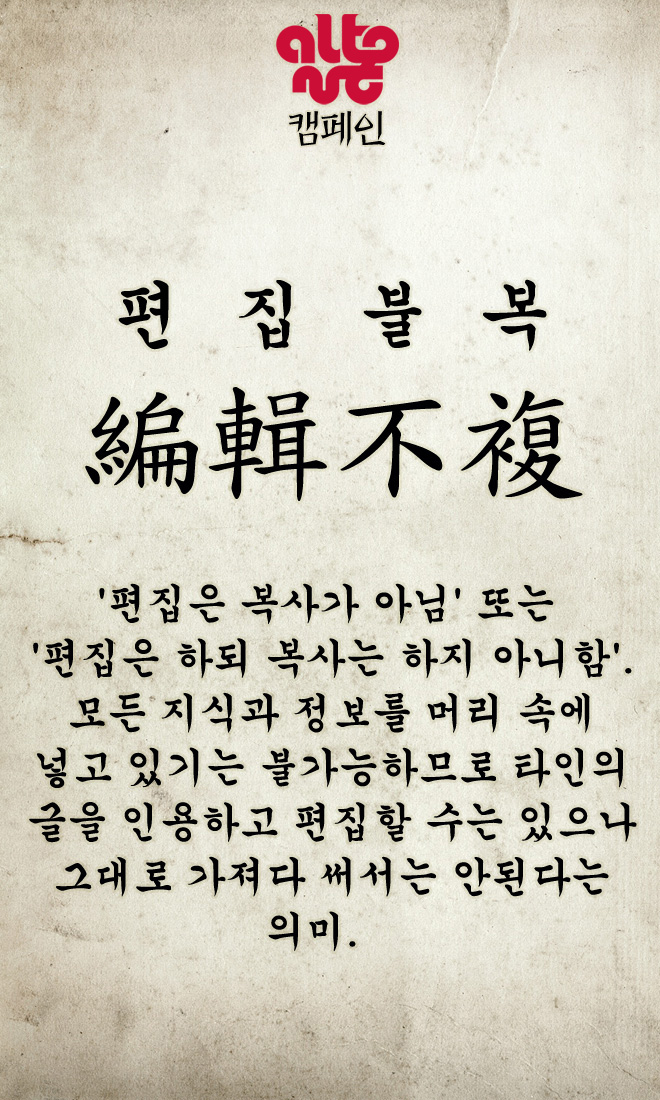 alto
캠페인
편 집 불 복
編輯不複
'편집은 복사가 아님' 또는
'편집은 하되 복사는 하지 아니함'.
모든 지식과 정보를 머리 속에
넣고 있기는 불가능하므로 타인의
글을 인용하고 편집할 수는 있으나
그대로 가져다 써서는 안된다는
의미.